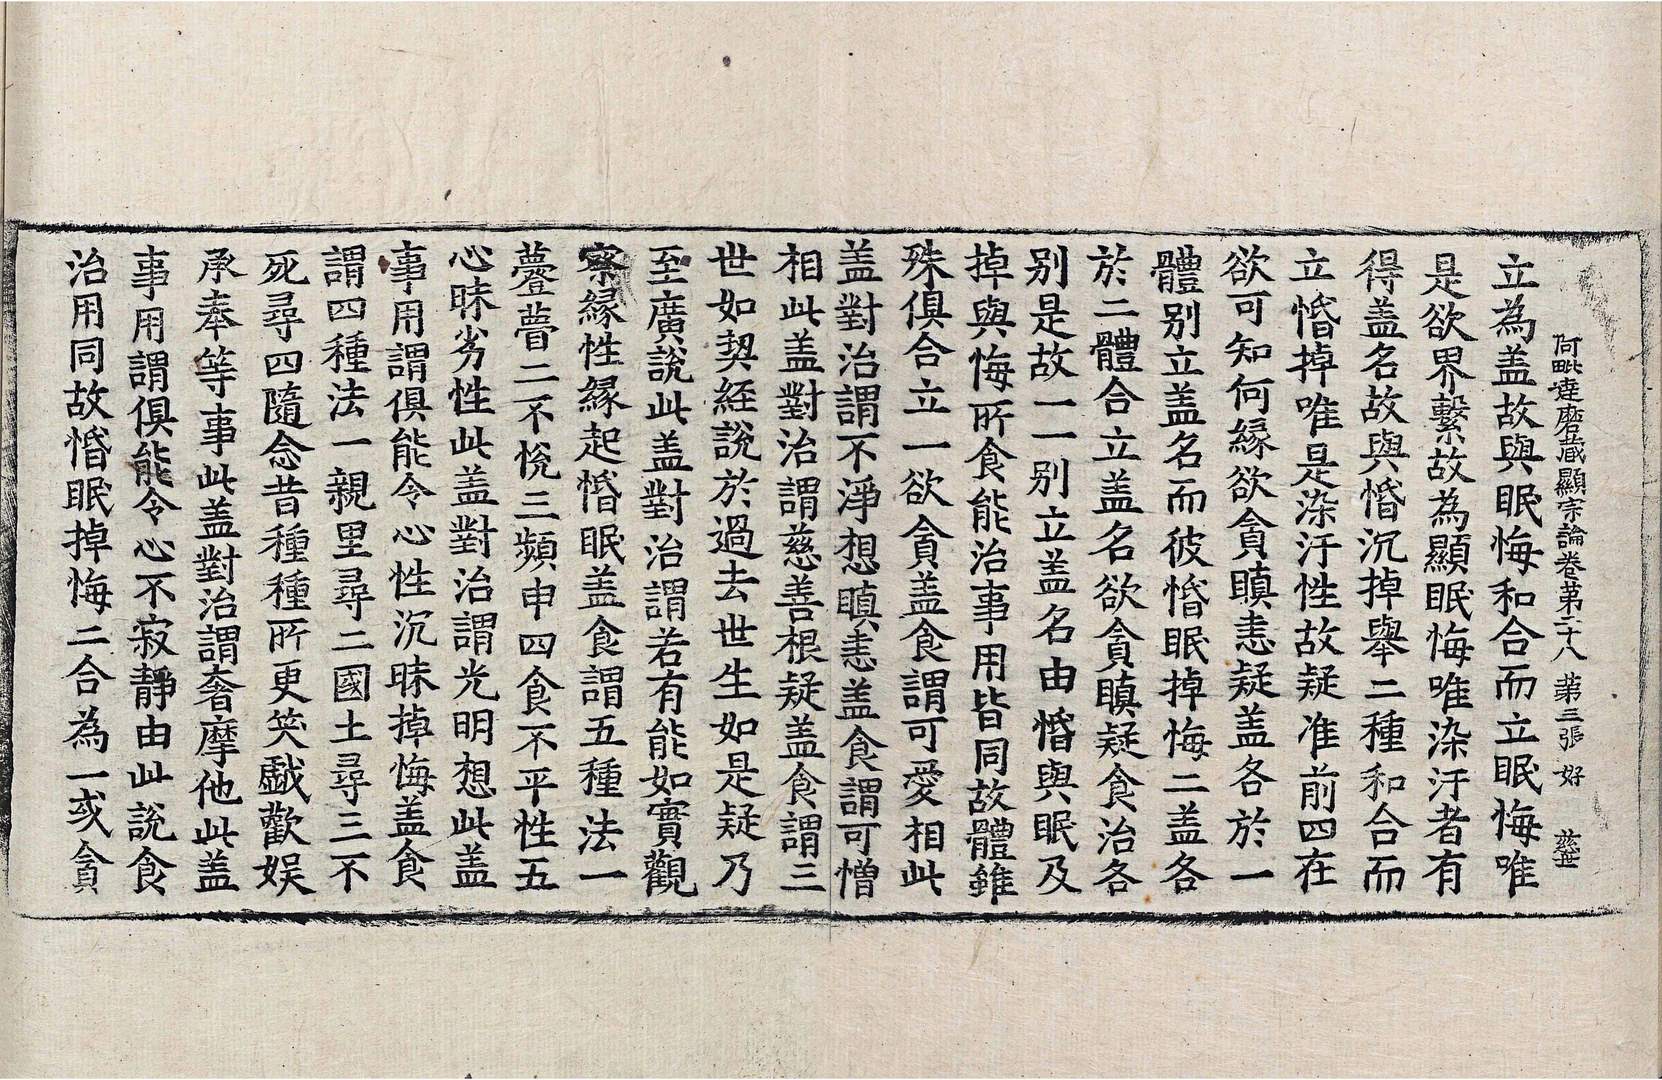 阿毗達磨藏顯宗論卷第二十八 第三張 好
立為盖故與眠悔和合而立眠悔唯
是欲界繫故為顯眠悔唯染汙者有
得盖名故與惛沉掉舉二種和合而
立惛掉唯是染汙性故疑准前四在
欲可知何緣欲貪瞋恚疑盖各於一
體別立盖名而彼惛眠掉悔二盖各
於二體合立盖名欲貪瞋疑食治各
別是故一一別立盖名由惛與眠及
掉與悔所食能治事用皆同故體雖
殊俱合立一欲貪盖食謂可愛相此
盖對治謂不淨想瞋恚盖食謂可憎
相此盖對治謂慈善根疑盖食謂三
世如契經說於過去世生如是疑乃
至廣說此盖對治謂若有能如實觀
察緣性緣起惛眠盖食謂五種法一
薹瞢二不悅三頻申四食不平性五
心昧劣性此盖對治謂光明想此盖
事用謂俱能令心性沉昧掉悔盖食
謂四種法一親里尋二國土尋三不
死尋四隨念昔種種所更笑戲歡娱
承奉等事此盖對治謂奢摩他此盖
事用謂俱能令心不寂靜由此說食
治用同故惛眠掉悔二合為一或貪